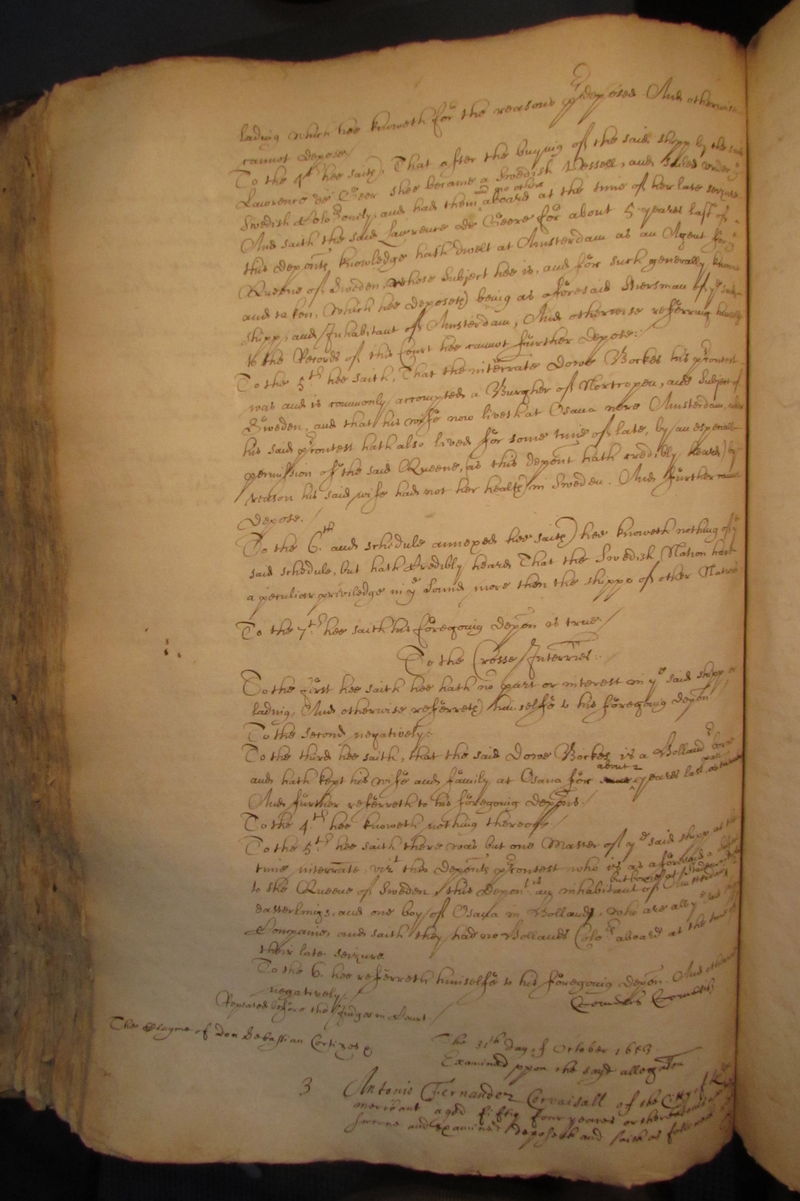 lading which hee knoweth for the reasons predeposed And otherwise
cannot depose./
To the 4th hee saith, That after the buying of the said shipp by the said
Lawrence de Geer shee became a Swedish Vessell, and sailed under
Swedish Colors onely, and had them and no other aboard at the time of her late seizure
And saith the said Lawrence de Geere for about 5 yeares last of
this deponents knowledge hath dwelt at Amsterdam as an Agent for ye
Queene of Sweden, whose subject hee is, and for such generally knowne
and taken, which hee deposeth being as aforesaid Stersman of ye said
shipp, and Inhabitant of Amsterdam, And otherwise referring himselfe
to the Records of this Court hee cannot further depose./
To the 5th hee saith, That the interrate Dowe Bockes his precontest
was and is commonly accompted a Burgher of Nortcopen, and subject of
Sweden, and that his wife now liveth at Osana nere Amsterdam, where
his said precontest hath also lived for some time of late, by an especiall
permission of the said Queene, (as this deponent hath credibly heard) by
reason his said wife had not her health in Sweden. And further cannot
depose./
To the 6th and schedule annexed hee saith, hee knoweth nothing of ye
said schedule, but hath credibly heard That the Swedish Nation hath
a peculiar priviledge in ye Sound more then the shipps of other Nations
To the 7th hee saith his foregoing depon is true./
To the Crosse Interries.
To the first hee saith hee hath no part or interest in ye said shipp or
lading, And otherwise referreth himselfe to his foregoing depon
To the second negatively.
To the third hee saith, that the said Dowe Bockes is a Hollander borne
and hath kept his wife and family at Osana for about 2 yeares last past
And further referreth to his foregoing depons./
To the 4th hee knoweth nothing thereof./
To the 5th hee saith there was but one Master of ye said shipp at the
time interrate, vizt this deponents precontest who is as aforesaid a subject
to the Queene of Sweden, this deponent is an inhabitant of Amsterdam
Easterlings, and one boy of Osana in Holland, who are all ye
Companie, and saith they had no Hollands Colors aboard at the time of
their late seizure
To the 6. hee referreth himselfe to his foregoing depon. And otherwise
negatively./
Repeated before the Judges in Court./
The Clayme of Don Sebastian Cortizos
The 31th day of October 1653
Examined upon the sayd allegation
3
Antonio Fernandez Carvaiall of the Citty of
Merchant aged fifty four yeares or thereabouts
sworne and examined deposeth and saith as followeth